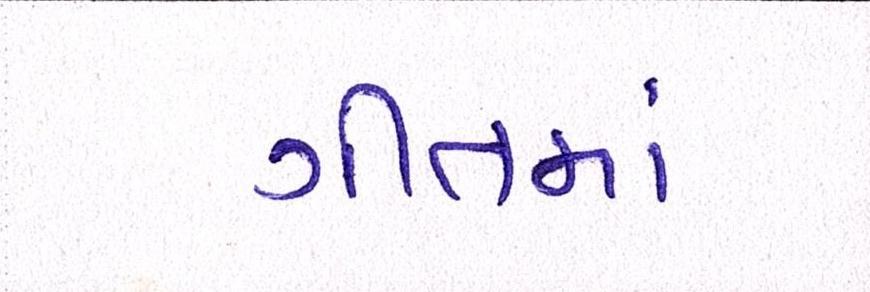 ગીતમાં